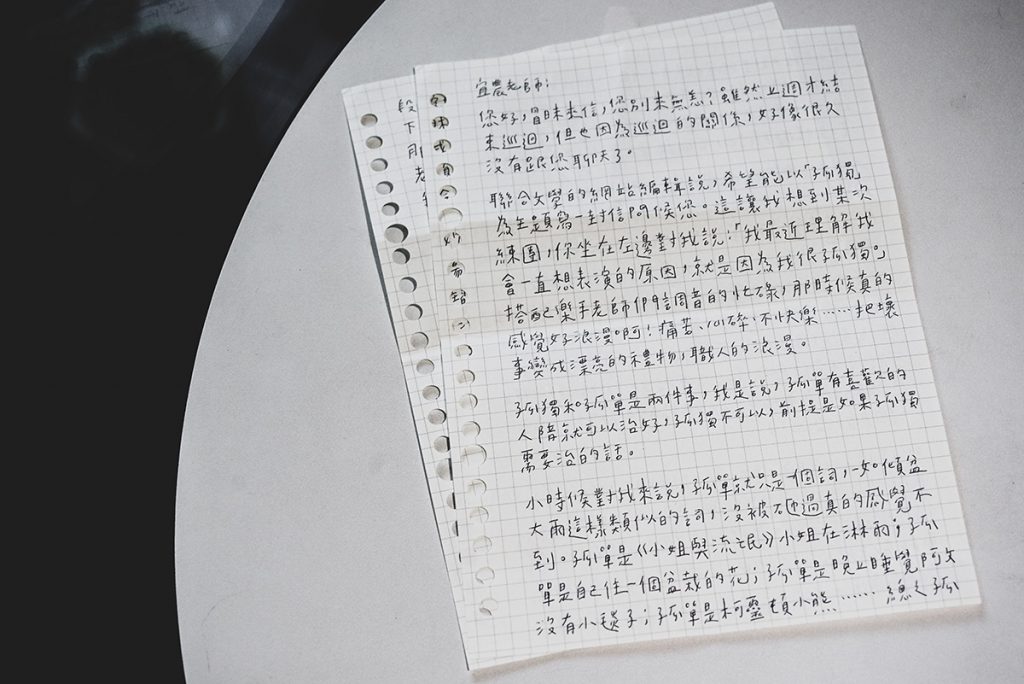 宜農老師：
您好，冒昧來信，您別來無恙？雖然上週才結
束巡迴，但也因為巡迴的關係，好像很久
沒有跟您聊天了。
聯合文學的網站編輯說，希望能以「孤獨」
為主題寫一封信問候您。這讓我想到某次
練團，你坐在左邊對我說：「我最近理解我
會一直想表演的原因，就是因為我很孤獨。」
搭配樂手老師們調音的忙碌，那時候真的
感覺好浪漫啊！痛苦、心碎、不快樂……把壞
事變成漂亮的禮物，職人的浪漫。
孤獨和孤單是兩件事，我是說，孤單有喜歡的
人陪就可以治好，孤獨不可以，前提是如果孤獨
需要治的話。
小時候對我來說，孤單就只是一個詞，一如傾盆
大雨這樣類似的詞，沒被砸過真的感覺不
到。孤單是《小姐與流氓》小姐在淋雨；孤
單是自己住一個盆栽的花；孤單是晚上睡覺阿文
沒有小毯子；孤單是柯靈頓小熊……總之孤
段
下